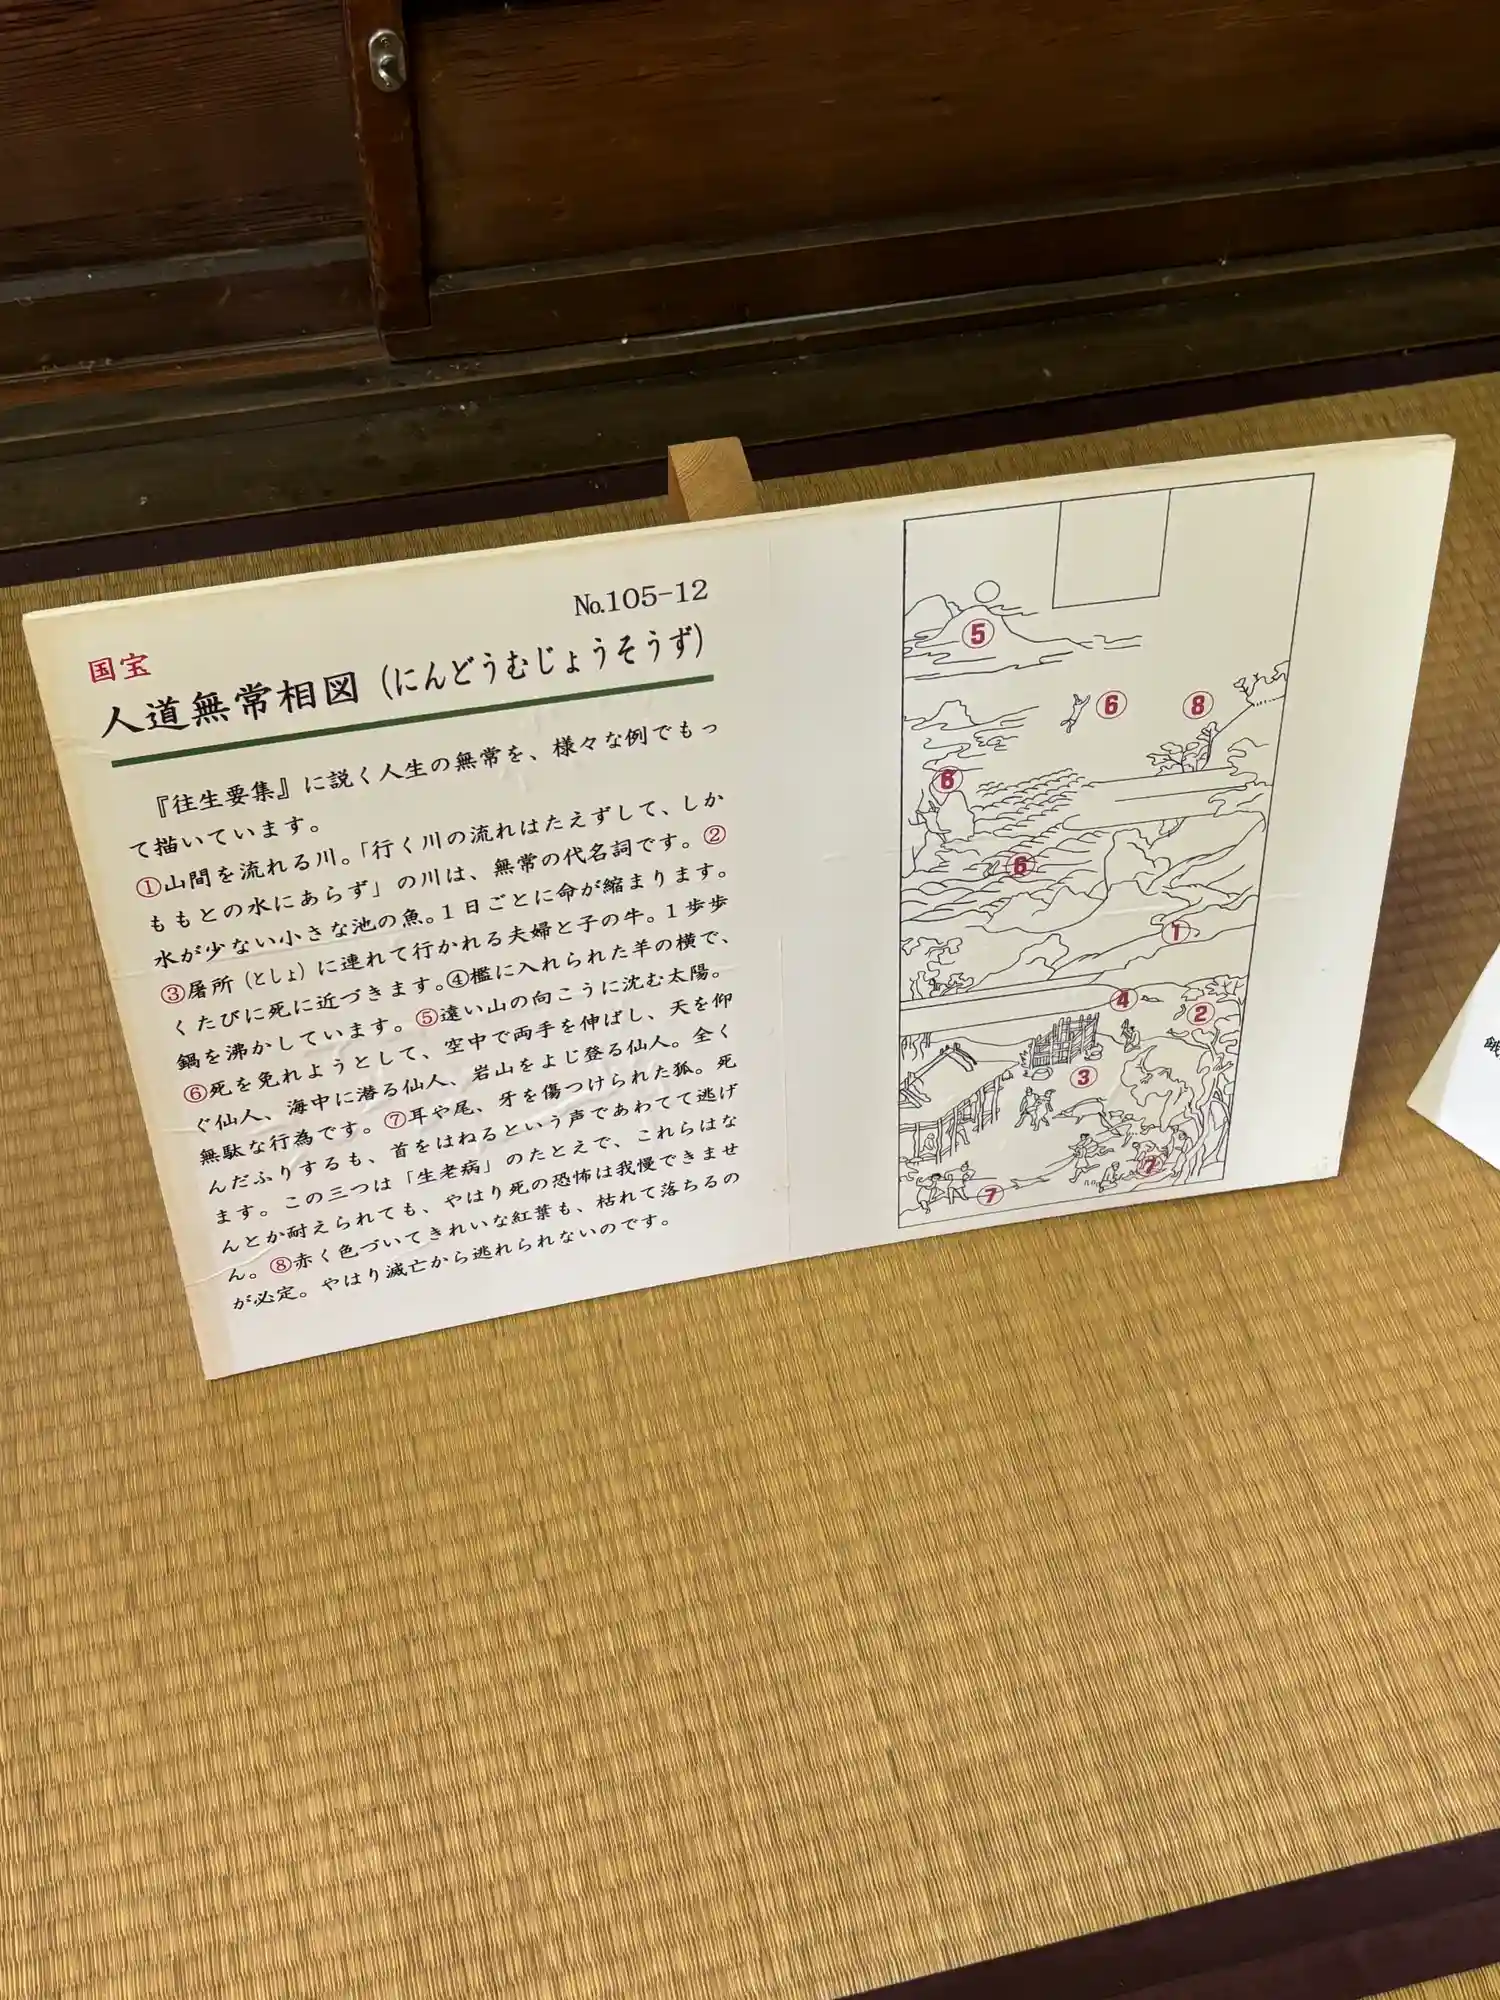 No.105-12
国宝
人道無常相図(にんどうむじょうそうず)
『往生要集』に説く人生の無常を、様々な例でもっ
て描いています。
①山間を流れる川。「行く川の流れはたえずして、しか
ももとの水にあらず」の川は、無常の代名詞です。②
水が少ない小さな池の魚。1日ごとに命が縮まります。
③屠所(としょ)に連れて行かれる夫婦と子の牛。1歩歩
くたびに死に近づきます。④檻に入れられた羊の横で、
鍋を沸かしています。⑤遠い山の向こうに沈む太陽。
⑥死を免れようとして、空中で両手を伸ばし、天を仰
ぐ仙人、海中に潜る仙人、岩山をよじ登る仙人。全く
無駄な行為です。⑦耳や尾、牙を傷つけられた狐。死
んだふりするも、首をはねるという声であわてて逃げ
ます。この三つは「生老病」のたとえで、これらはな
んとか耐えられても、やはり死の恐怖は我慢できませ
ん。⑧赤く色づいてきれいな紅葉も、枯れて落ちるの
が必定。やはり滅亡から逃れられないのです。
⑤
⑥
⑧
⑥
⑥
①
④
②
③
⑦
⑦
餓